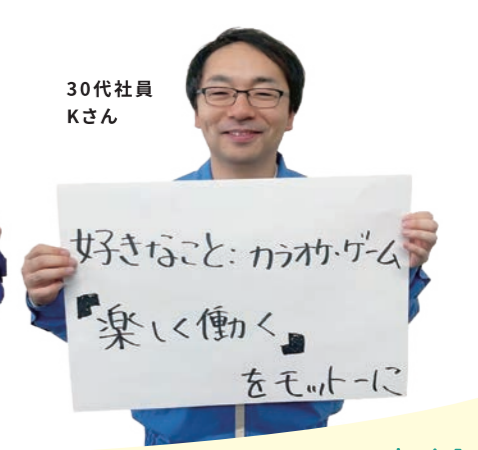 30代社員
Kさん
好きなこと:カラオケ・ゲーム
『楽しく働く』
をモットーに